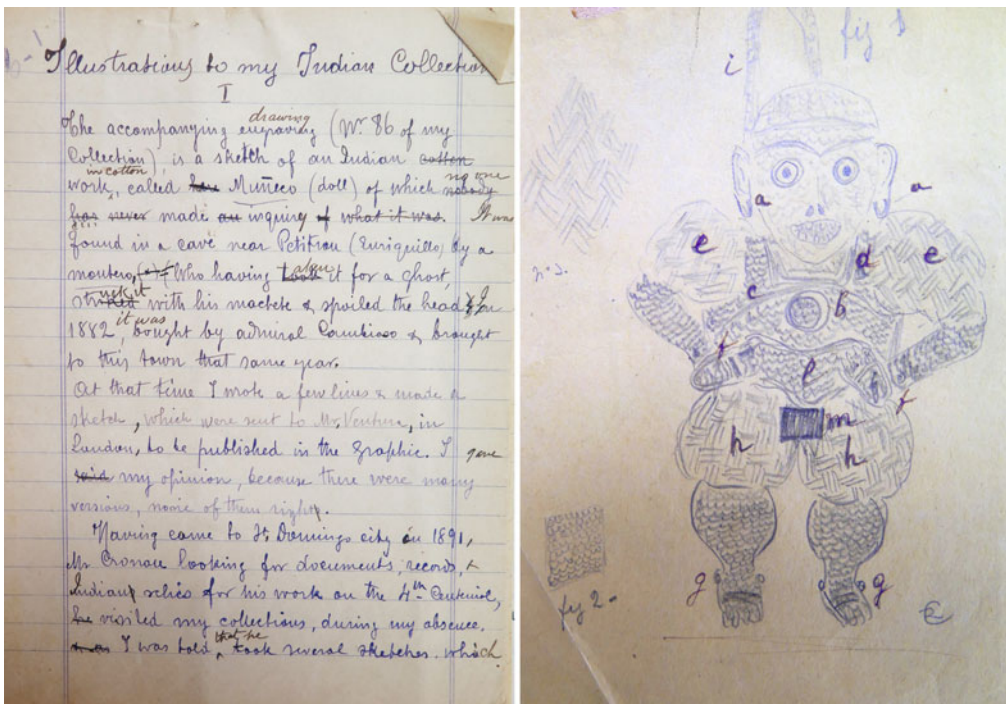 Illustrations to my Indian Collection
I
drawing
The accompanying engraving (Nº 86 of my
Collection), is a sketch of an Indian cotton
in cotton no one
work, called here Muñeco (doll) of which nobody
has never made an inquiry of what it was. It was
found in a cave near Petitrou (Enriquillo) by a
montero, Who having took it for a ghost,
taken
struck it
with his machete & spoiled the head & In
it was
1882, bought by admiral Cambiaso & brought
to this town that same year.
At that time I wrote a few lines & made a
sketch, which were sent to Mr. Ventura, in
London, to be published in the Graphic. I gave
said my opinion, because there were many
versions, none of them right.
Having come to St Domingo city in 1891,
Mr Cronau looking for documents, records, &
Indian relics for his work on the 4th Centenial,
he visited my collections, during my absence.
that he
I was told, took several sketches which
fig 1
i
a
a
e
d
e
c
b
f
l
f
m
h
h
g
g
fig 2-